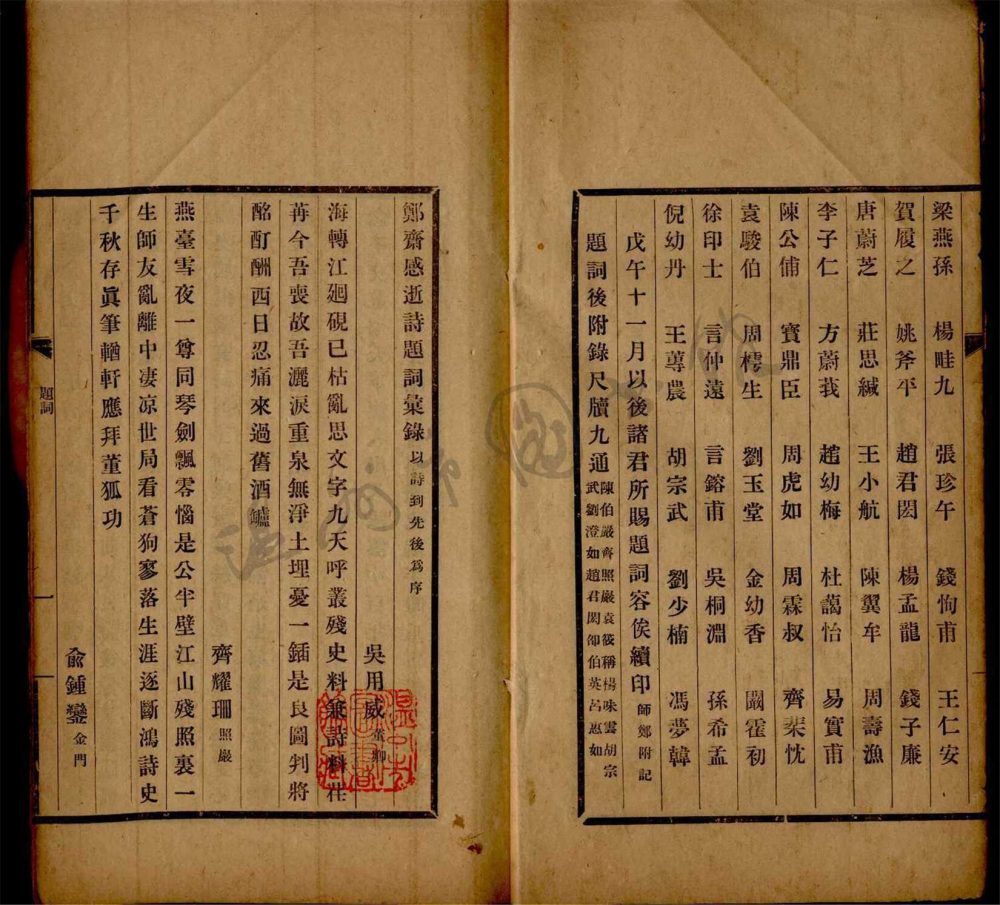 梁燕孫 楊畦九 張珍午 錢恂甫 王仁安
賀履之 姚斧平 趙君閎 楊孟龍 錢子廉
唐蔚芝 莊思緘 王小航 陳翼牟 周壽漁
李子仁 方蔚莪 趙幼梅 杜藹怡 易實甫
陳公俌 寶鼎臣 周虎如 周霖叔 齊栞忱
袁駿伯 周樗生 劉玉堂 金幼香 嚴霍初
徐印士 言仲遠 言鎔甫 吳桐淵 孫希孟
倪幼丹 王蓴農 胡宗武 劉少楠 馮夢韓
戊午十一月以後諸君所賜題詞容俟續印 師鄭附記
題詞後附錄尺牘九通 陳伯嚴齊照巖袁筱稱楊味雲胡宗
武劉澄如趙君閎邵伯英呂惠如
鄭齋感逝詩題詞彙錄 以詩到先後爲序
吳用威 董卿
海轉江廻硯已枯亂思文字九天呼叢殘史料兼詩料荏
苒今吾喪故吾灑淚重泉無淨土埋憂一鍤是良圖判將
酩酊酬西日忍痛來過舊酒罏
齊耀珊 照巖
燕臺雪夜一尊同琴劍飄零惱是公半壁江山殘照裏一
生師友亂離中凄凉世局看蒼狗寥落生涯逐斷鴻詩史
千秋存眞筆輶軒應拜董狐功
俞鍾鑾 金門
題詞
一